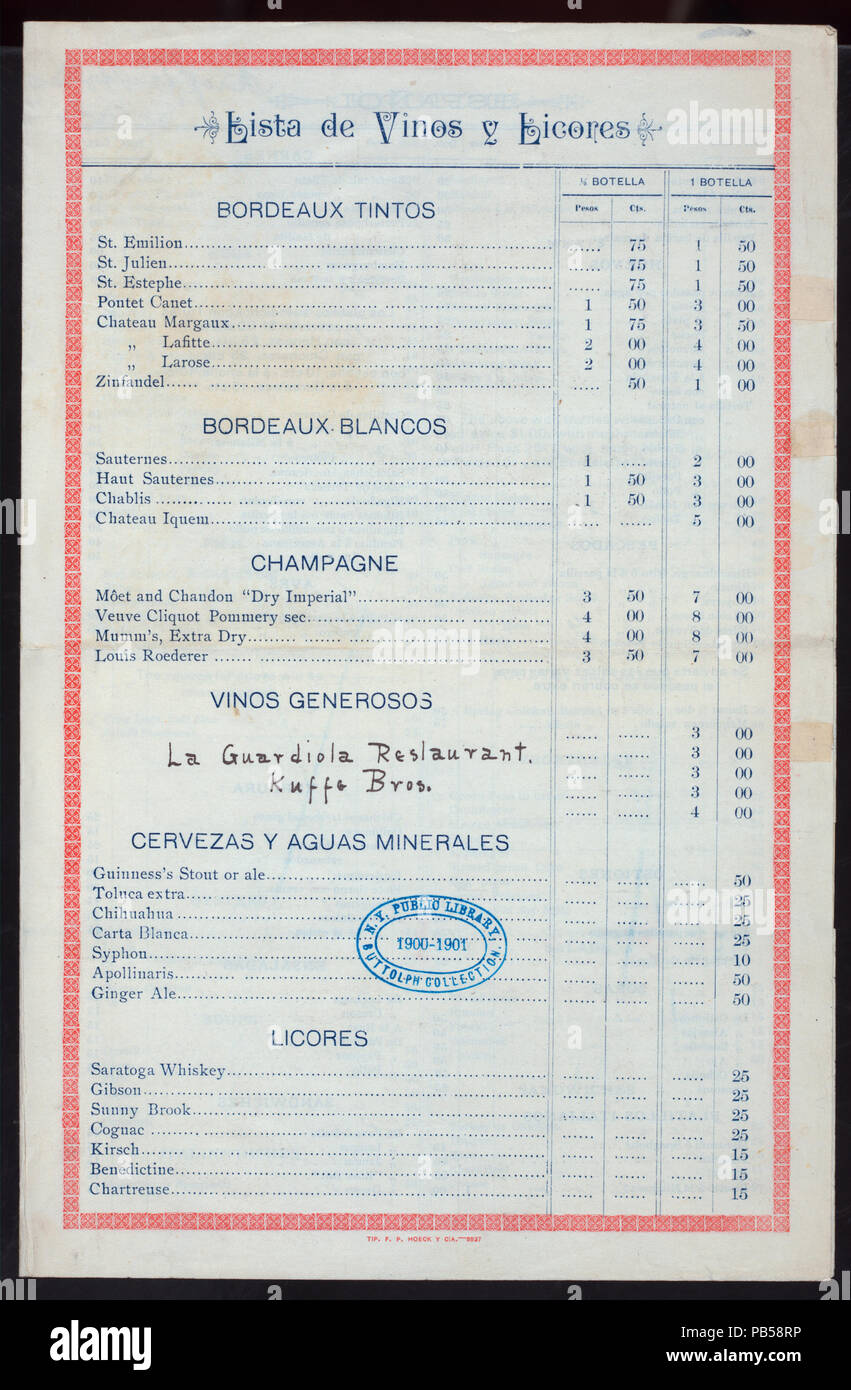 Lista de Vinos y Licores
½ BOTELLA 1 BOTELLA
Pesos Cts. Pesos Cts.
BORDEAUX TINTOS
St. Emilion 75 1 50
St. Julien 75 1 50
St. Estephe 75 1 50
Pontet Canet 1 50 3 00
Chateau Margaux 1 75 3 50
„ Lafitte 2 00 4 00
„ Larose 2 00 4 00
Zinfandel 50 1 00
BORDEAUX BLANCOS
Sauternes 1 ..... 2 00
Haut Sauternes 1 50 3 00
Chablis 1 50 3 00
Chateau Iquem ..... ..... 5 00
CHAMPAGNE
Môet and Chandon “Dry Imperial” 3 50 7 00
Veuve Cliquot Pommery sec. 4 00 8 00
Mumm's, Extra Dry 4 00 8 00
Louis Roederer 3 50 7 00
VINOS GENEROSOS
..... ..... 3 00
La Guardiola Restaurant. ..... ..... 3 00
Kuffe Bros. ..... ..... 3 00
..... ..... 3 00
..... ..... 4 00
CERVEZAS Y AGUAS MINERALES
Guinness's Stout or ale 50
Toluca extra 25
Chihuahua 25
Carta Blanca 25
Syphon 10
Apollinaris 50
Ginger Ale 50
N.Y. PUBLIC LIBRARY,
1900-1901
BUTTOLPH COLLECTION.
LICORES
Saratoga Whiskey 25
Gibson 25
Sunny Brook 25
Cognac 25
Kirsch 15
Benedictine 15
Chartreuse 15
TIP. F. P. HOECK Y CIA.—8637
alamy
Image ID: PB58RP
www.alamy.com